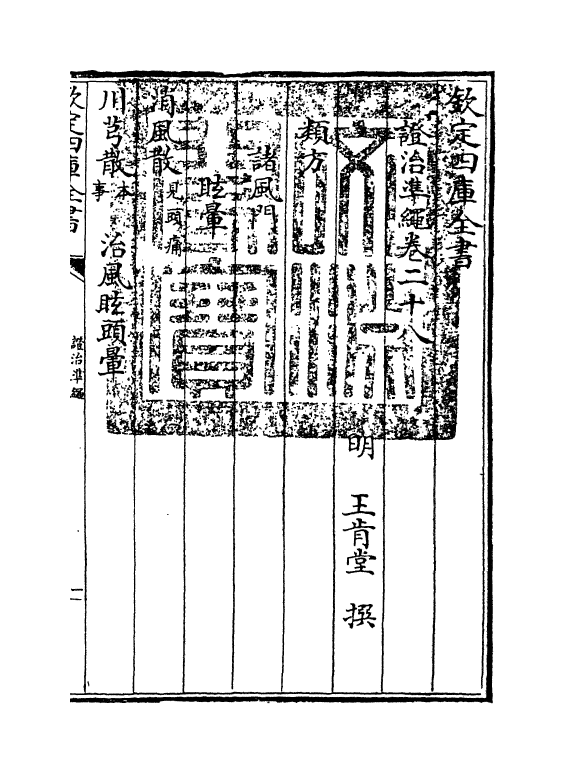 欽定四庫全書
證治準繩卷二十八
明 王肯堂 撰
類方
諸風門
眩暈
消風散見頭痛
川芎散本事 治風眩頭暈
欽定四庫全書
證治準繩
一